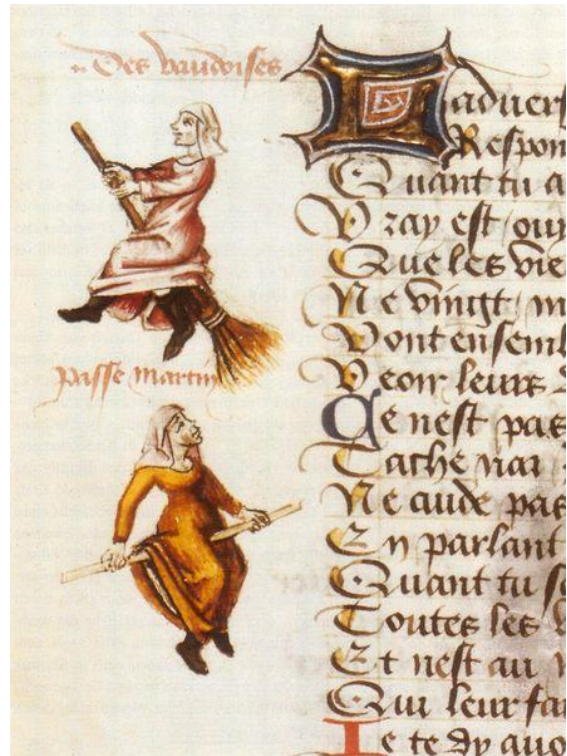 Des vaudoises
passe martin
Laduers
Respon
Quant tu a
Vray est ouy
Que les vie
Ne vingt m
Vont ensembl
Veoir leurs
Ce nest pas
Ne cuide pas
En parlant
Quant tu so
Toutes les
Et nest au
Qui leur fai
Ie te dy auo